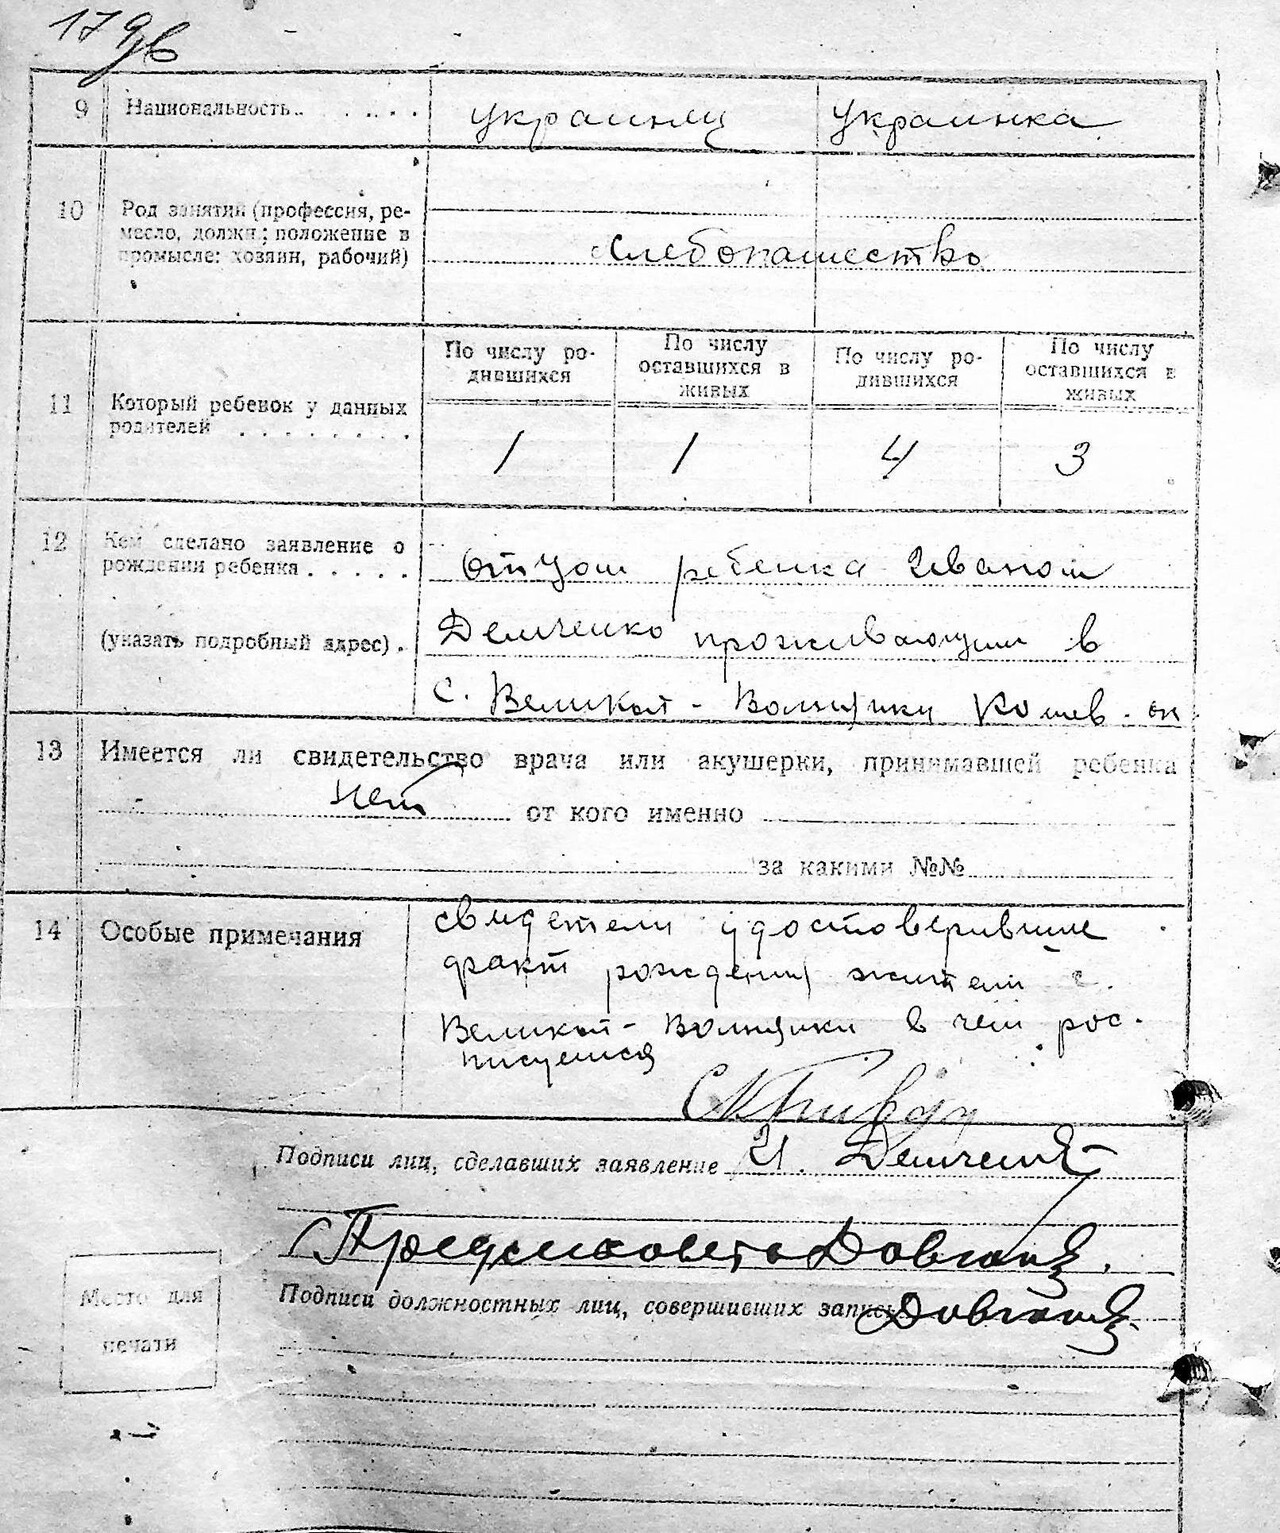 17
9 Национальность . . . . . украинец украинка
10 Род занятий (профессия, ре-
месло, должн; положение в
промысле: хозяин, рабочий)
хлебопашество
По числу ро-
дившихся
По числу
оставшихся в
живых
По числу ро-
дившихся
По числу
оставшихся в
живых
11 Который ребенок у данных
родителей . . . . . . . .
1 1 4 3
12 Кем сделано заявление о
рождении ребенка . . . . .
(указать подробный адрес) .
отцом ребенка Иваном
Демченко проживающим в
с. Великой-
13 Имеется ли свидетельство врача или акушерки, принимавшей ребенка
нет от кого именно
за какими №№
14 Особые примечания
свидетели удостоверившие
факт рождения жители с.
Великой- в чем рос-
писуемся
Подписи лиц, сделавших заявление И. Демченко
Довгань
Место для
печати
Подписи должностных лиц, совершивших запись Довгань